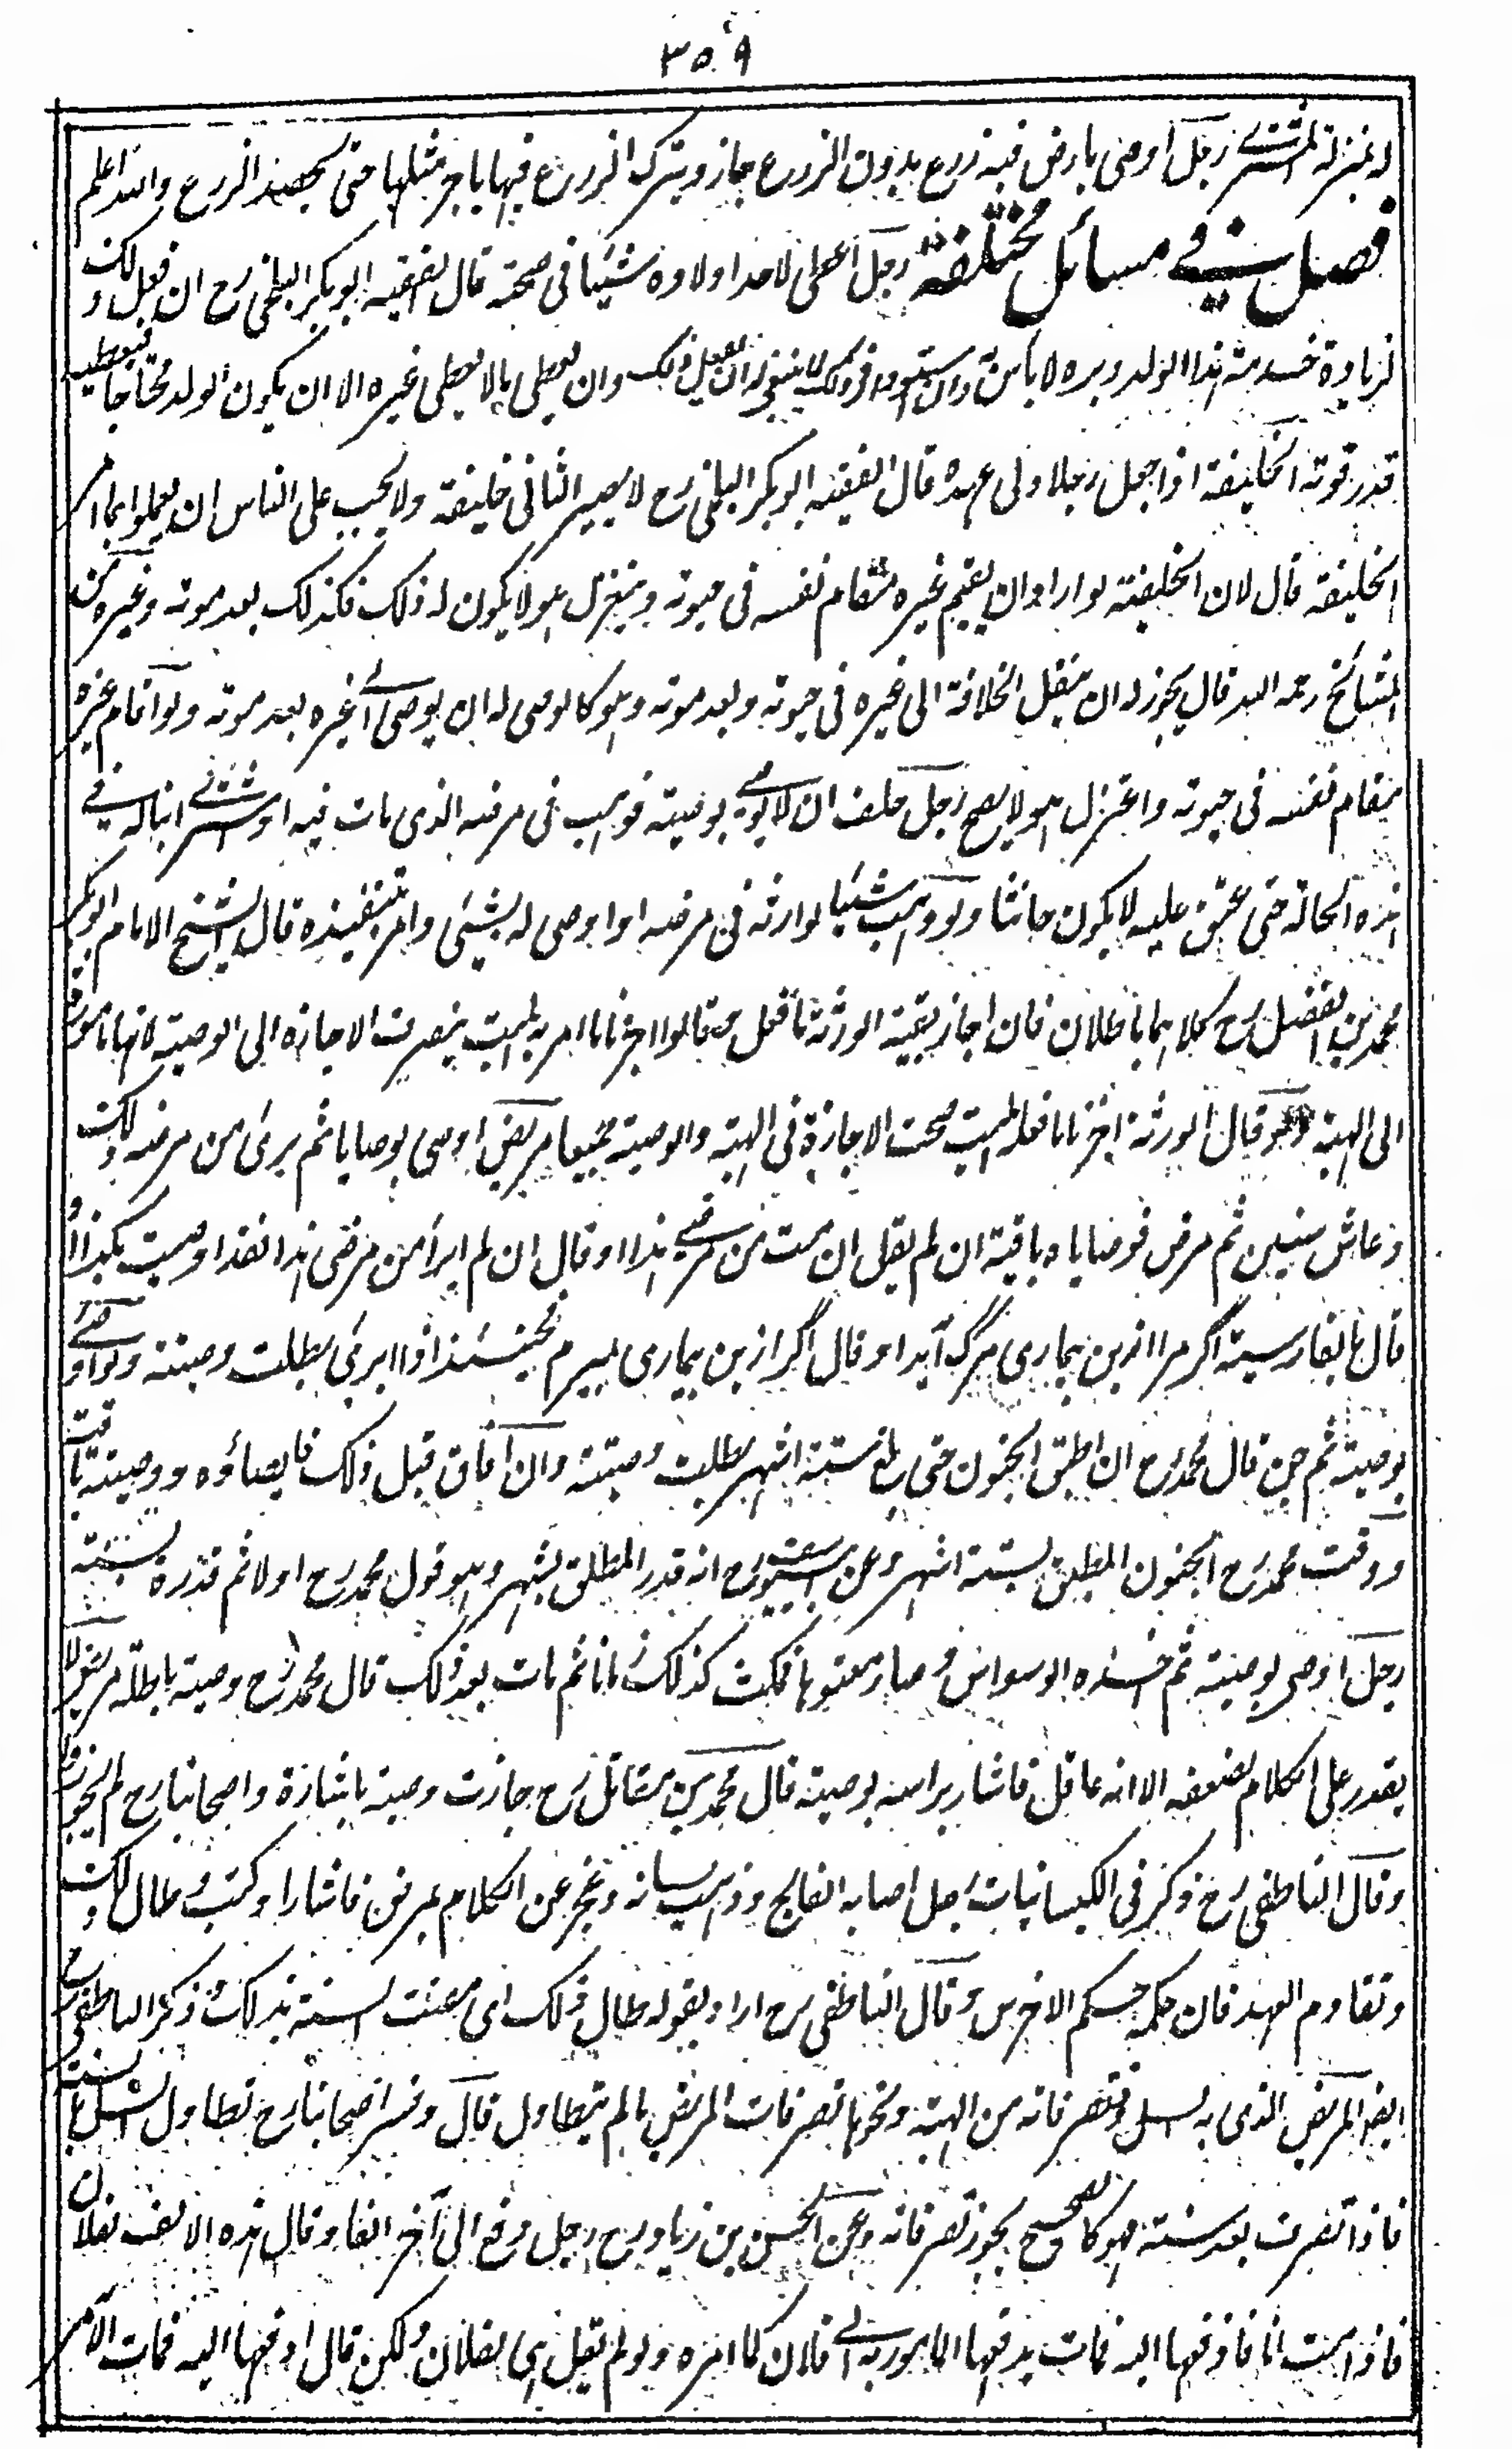 ٣٥٩
له بمنزلة المشترى رجل اوصى بارض فيه زرع بدون الزرع جاز ويترك الزرع فيها باجر مثلها حتى يحصد الزرع والله اعلم
فصل فى مسائل مختلفة رجل اعطى لاحد اولاده شيئا فى صحته قال الفقيه ابو بكر البلخى رح ان فعل ذلك
لزيادة خدمة هذا الولد وبره لا باس به وان استووا فى ذلك لا ينبغى له ان يفعل ذلك وان يعطى مالا يعطى غيره الا ان يكون الولد محتاجا فيعطيه
قدر قوته الخليفة اذا جعل رجلا ولى عهده قال الفقيه ابو بكر البلخى رح لا يصير الثانى خليفة ولا يجب على الناس ان يعملوا بما امر
الخليفة قال لان الخليفة لو اراد ان يقيم غيره مقام نفسه فى حيوته وينعزل هو لا يكون له ذلك فكذلك بعد موته وغيره من
المشائخ رحمه الله قال يجوز له ان ينقل الخلافة الى غيره فى حيوته وبعد موته وهو كالوصى له ان يوصى الى غيره بعد موته ولو اقام غيره
مقام نفسه فى حيوته واعتزل هو لا يصح رجل حلف ان لا يوصى بوصية فوهب فى مرضه الذى مات فيه او اشترى اباه فى
هذه الحالة حتى عتق عليه لا يكون حانثا ولو وهب شيئا لوارثه فى مرضه او اوصى له بشئى وامر بتنفيذه قال الشيخ الامام ابو بكر
محمد بن الفضل رح كلاهما باطلان فان اجاز بقية الورثة ما فعل وقالوا اجزنا ما امر به الميت ينصرف الاجازة الى الوصية لانها مامورة
الى الهبة ولو قال الورثة اجزنا ما فعله الميت صحت الاجازة فى الهبة والوصية جميعا مريض اوصى بوصايا ثم برئ من مرضه ذلك
وعاش سنين ثم مرض فوصاياه باقية ان لم يقل ان مت من مرضى هذا او قال ان لم ابرأ من مرضى هذا فقد اوصيت بكذا او
قال بالفارسية اگر مرا ازين بيمارى مرگ آيد او قال اگر ازين بيمارى بميرم فحينئذ اذا برئ بطلت وصيته ولو اوصى
بوصية ثم جن قال محمد رح ان اطبق الجنون حتى بلغ ستة اشهر بطلت وصيته وان افاق قبل ذلك فايصاؤه ووصيته باقية
ووقت محمد رح الجنون المطبق بستة اشهر وعن ابى يوسف رح انه قدر المطبق بشهر وهو قول محمد رح اولا ثم قدره بسنة
رجل اوصى بوصية ثم اخذه الوسواس وصار معتوها فمكث كذلك زمانا ثم مات بعد ذلك قال محمد رح وصيته باطلة مريض لا
يقدر على الكلام لضعفه الا انه عاقل فاشار براسه بوصية قال محمد بن مقاتل رح جازت وصيته باشارة واصحابنا رح لم يجوزوا
وقال الناطفى رح ذكر فى الكيسانيات رجل اصابه الفالج وذهب لسانه وعجز عن الكلام بمرض فاشار او كتب وطال ذلك
وتقادم العهد فان حكمه حكم الاخرس وقال الناطفى رح اراد بقوله طال ذلك اى مضت سنة بذلك وذكر الناطفى رح
ايضا المريض الذى به سل فتصرفاته من الهبة ونحوها تصرفات المريض مالم يتطاول قال وفسر اصحابنا رح تطاول السل بالسنة
فاذا تصرف بعد سنة فهو كالصحيح يجوز تصرفاته وعن الحسن بن زياد رح رجل دفع الى آخر الفا وقال هذه الالف لفلان
فاذا مت انا فادفعها اليه فمات يدفعها المامور به الى فلان كما امره ولو لم يقل هى لفلان ولكن قال ادفعها اليه فمات الآمر